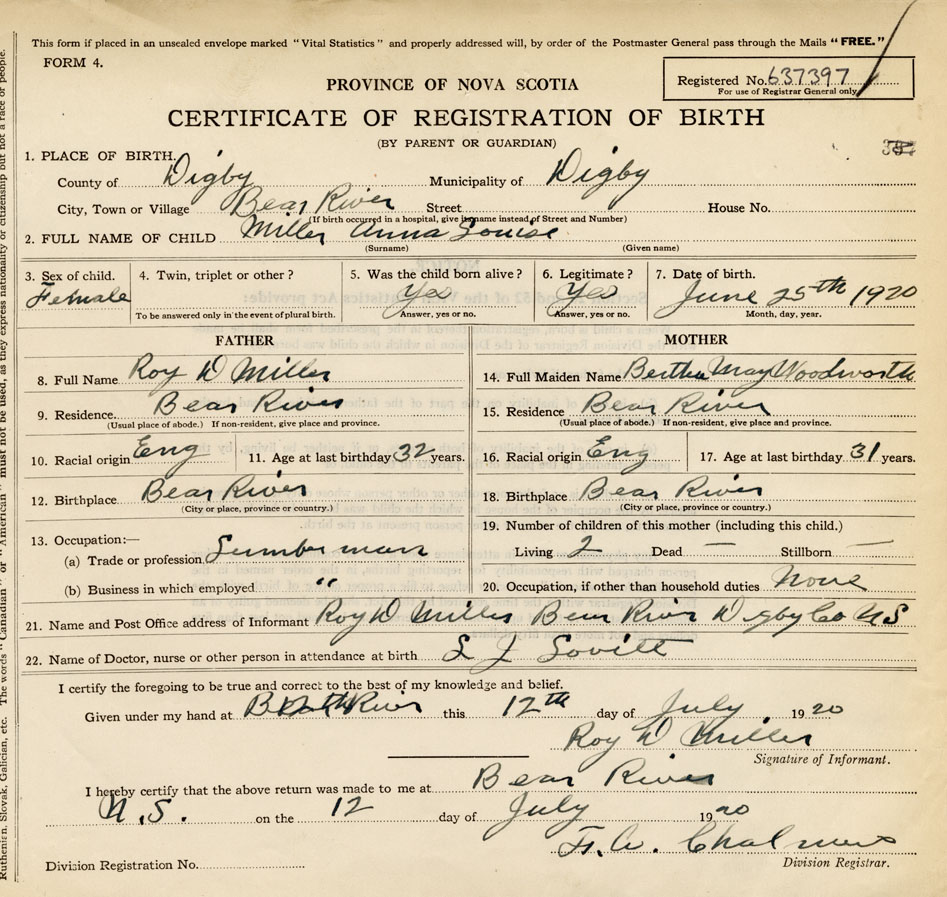 This form if placed in an unsealed envelope marked "Vital Statistics" and properly addressed will, by order of the Postmaster General pass through the Mails "FREE."
FORM 4.
Registered No. 637397
For use of Registrar General only
PROVINCE OF NOVA SCOTIA
CERTIFICATE OF REGISTRATION OF BIRTH
(BY PARENT OR GUARDIAN)
1. PLACE OF BIRTH.
County of Digby Municipality of Digby
City, Town or Village Bear River Street House No.
(If birth occured in a hospital, give its name instead of Street and Number)
2. FULL NAME OF CHILD Miller Anna Louise
(Surname) (Given name)
3. Sex of child. Female
4. Twin, triplet or other?
To be answered only in the event of plural birth.
5. Was the child born alive? Yes
Answer, yes or no.
6. Legitimate? Yes
Answer, yes or no.
7. Date of birth. June 25th 1920
Month, day, year.
FATHER
8. Full Name Roy D Miller
9. Residence. Bear River
(Usual place of abode.) If non-resident, give place and province.
10. Racial origin Eng 11. Age at last birthday 32 years.
12. Birthplace Bear River
(City or place, province or country.)
13. Occupation:—
(a) Trade or profession Lumberman
(b) Business in which employed "
MOTHER
14. Full Maiden Name Bertha May Woodworth
15. Residence Bear River
(Usual place of abode.) If non-resident, give place and province.
16. Racial origin Eng 17. Age at last birthday 31 years.
18. Birthplace Bear River
(City or place, province or country.)
19. Number of children of this mother (including this child.)
Living 2 Dead — Stillborn —
20. Occupation, if other than household duties None
21. Name and Post Office address of Informant Roy D Miller Bear River Digby Co N S
22. Name of Doctor, nurse or other person in attendance at birth L J Lovitt
I certify the foregoing to be true and correct to the best of my knowledge and belief.
Given under my hand at River this 12th day of July 1920
Roy D Miller
Signature of Informant.
I hereby certify that the above return was made to me at Bear River
N.S. on the 12 day of July 1920
Division Registration No.
Division Registrar.
Ruthenian, Slovak, Galician, etc. The words "Canadian" or "American" must not be used, as they express nationality or citizenship but not a race or people.